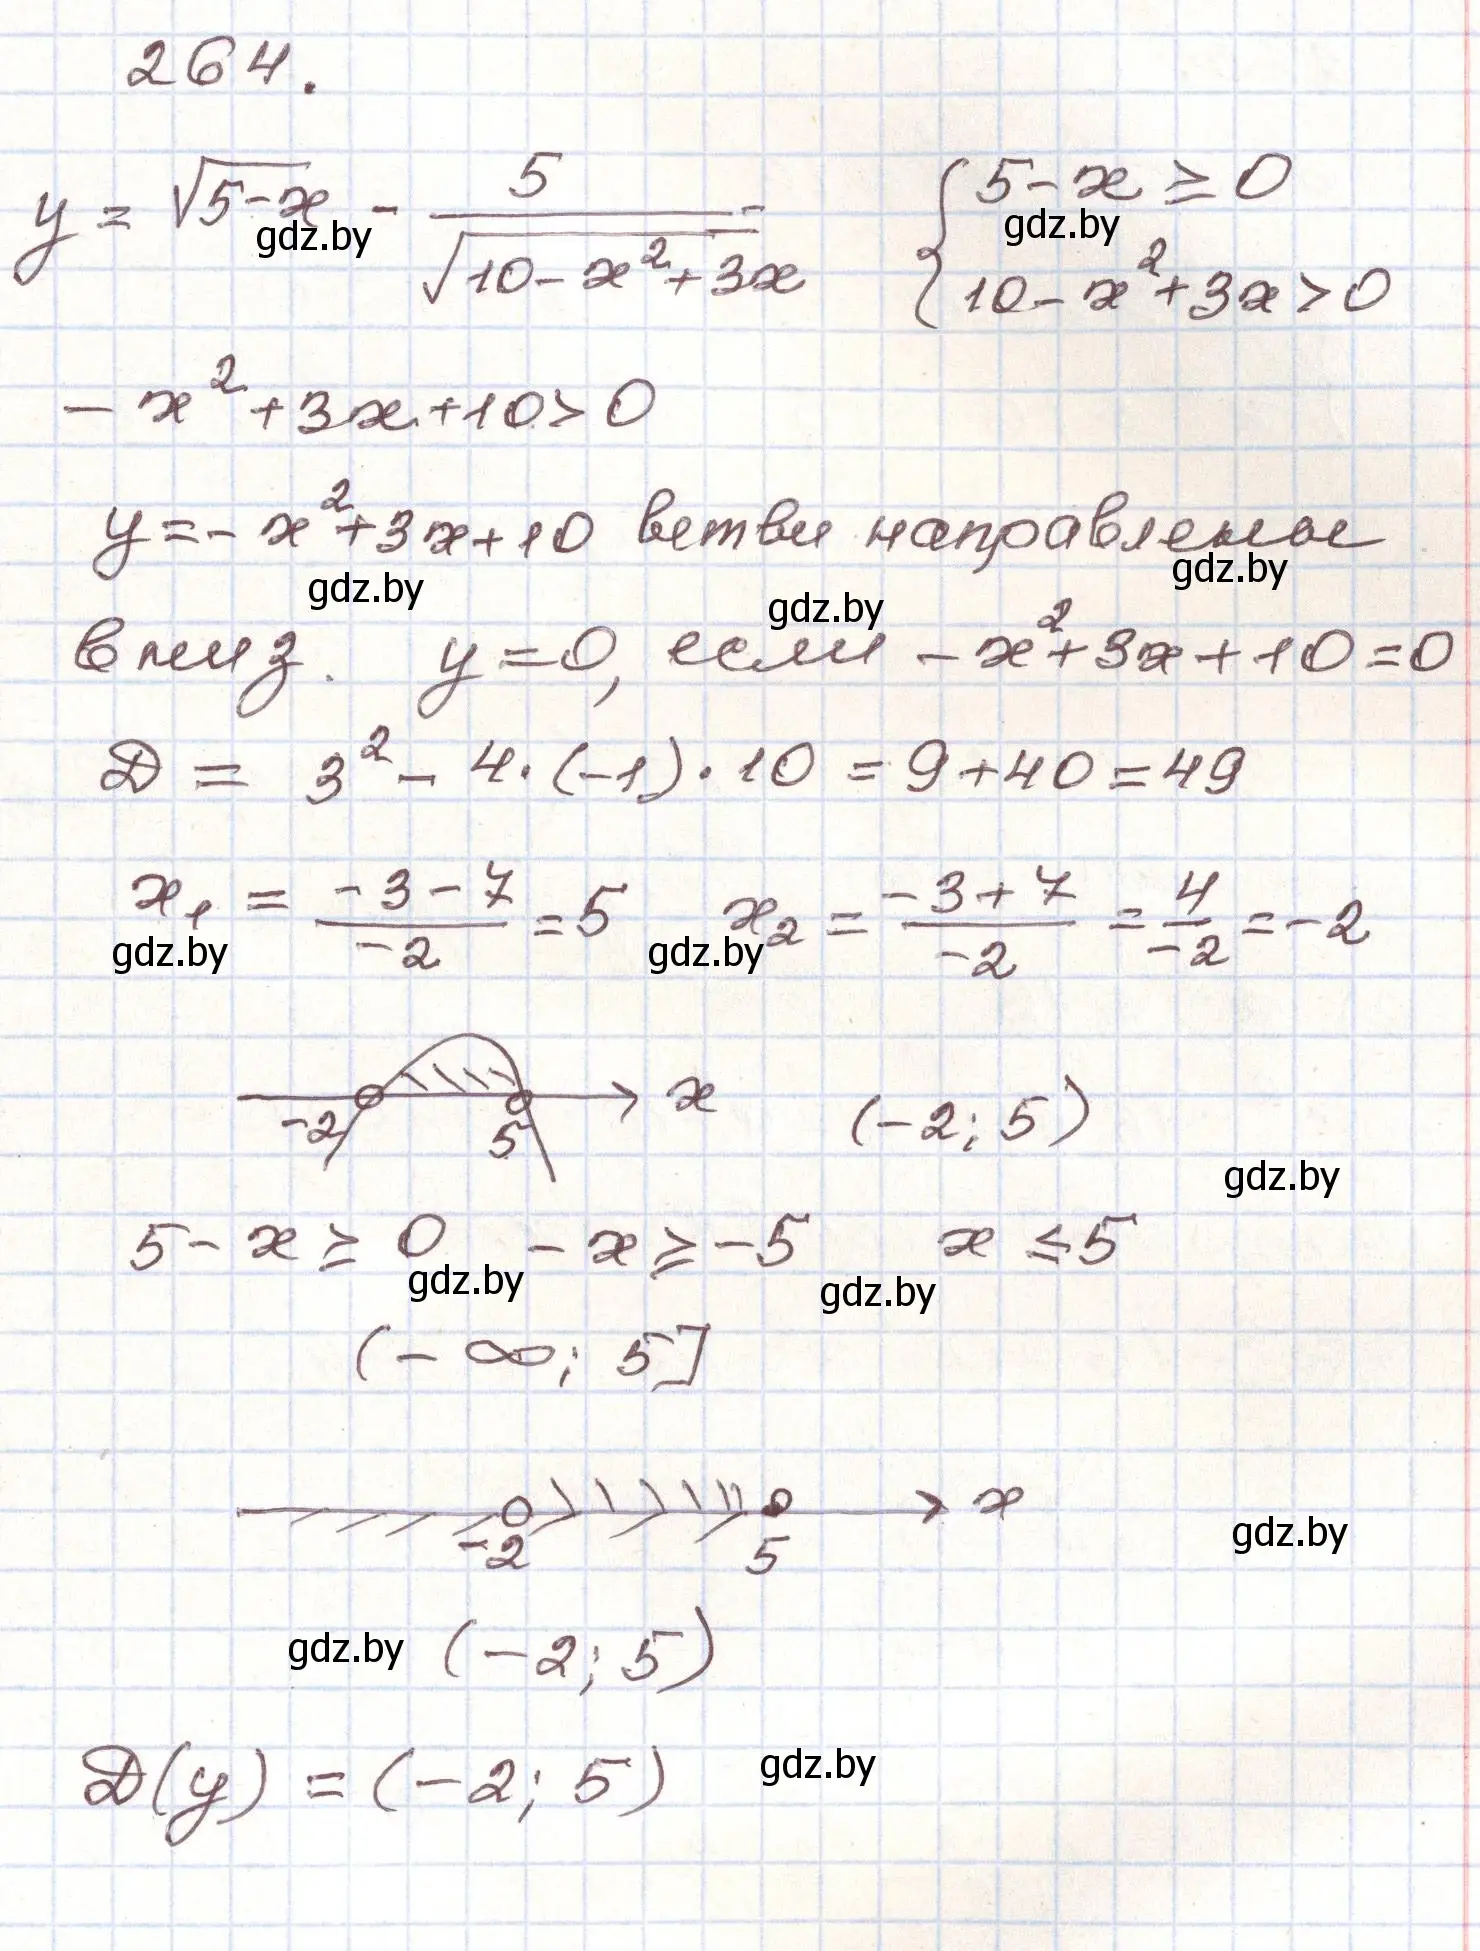 264.
y = √(5-x) - 5/√(10-x²+3x)    { 5-x ≥ 0
gdz.by    gdz.by
{ 10-x²+3x > 0
-x²+3x+10 > 0
y = -x²+3x+10 ветви направлены
gdz.by    gdz.by    gdz.by
вниз.    y = 0, если -x²+3x+10 = 0
D = 3² - 4·(-1)·10 = 9+40 = 49
x₁ = (-3-7)/(-2) = 5    x₂ = (-3+7)/(-2) = 4/(-2) = -2
gdz.by    gdz.by
-2    5    x    (-2; 5)
gdz.by
5-x ≥ 0    -x ≥ -5    x ≤ 5
gdz.by    gdz.by
(-∞; 5]
-2    5    x
gdz.by
gdz.by    (-2; 5)
D(y) = (-2; 5)    gdz.by